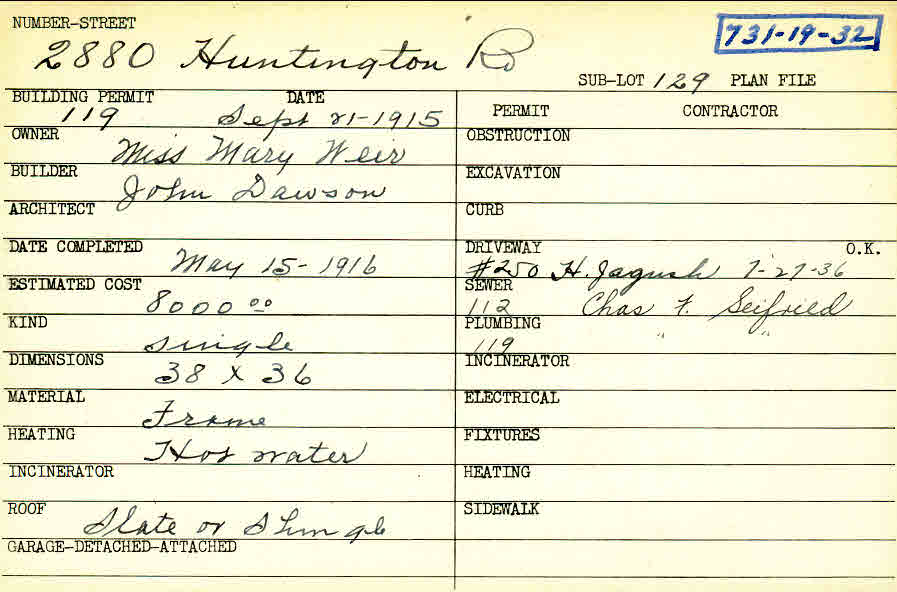 NUMBER-STREET
731-19-32
2880 Huntington Rd
SUB-LOT 129 PLAN FILE
BUILDING PERMIT DATE
119 Sept 21-1915
PERMIT CONTRACTOR
OWNER Miss Mary Weir
OBSTRUCTION
BUILDER John Dawson
EXCAVATION
ARCHITECT
CURB
DATE COMPLETED May 15-1916
DRIVEWAY O.K.
#250 H. Jagush 7-27-36
ESTIMATED COST 8000 00
SEWER
112 Chas F. Seifried
KIND single
PLUMBING
119 " "
DIMENSIONS 38 x 36
INCINERATOR
MATERIAL Frame
ELECTRICAL
HEATING Hot water
FIXTURES
INCINERATOR
HEATING
ROOF Slate or Shingle
SIDEWALK
GARAGE-DETACHED-ATTACHED